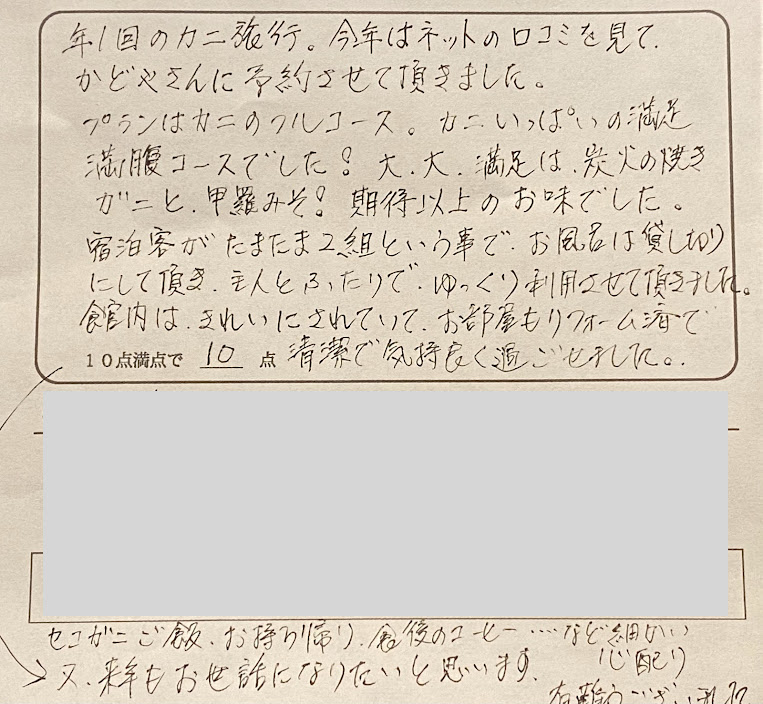 年1回のカニ旅行。今年はネットの口コミを見て、
かどやさんに予約させて頂きました。
プランはカニのフルコース。カニいっぱいの満足
満腹コースでした！大、大、満足は、炭火の焼き
ガニと、甲羅みそ！期待以上のお味でした。
宿泊客がたまたま2組という事で、お風呂は貸し切り
にして頂き、主人とふたりで、ゆっくり利用させて頂きました。
館内は、きれいにされていて、お部屋もリフォーム済で
10点満点で 10 点 清潔で気持良く過ごせました。
セコガニご飯、お持ち帰り、食後のコーヒー…など細かい
心配り
又、来年もお世話になりたいと思います。
有難うございました